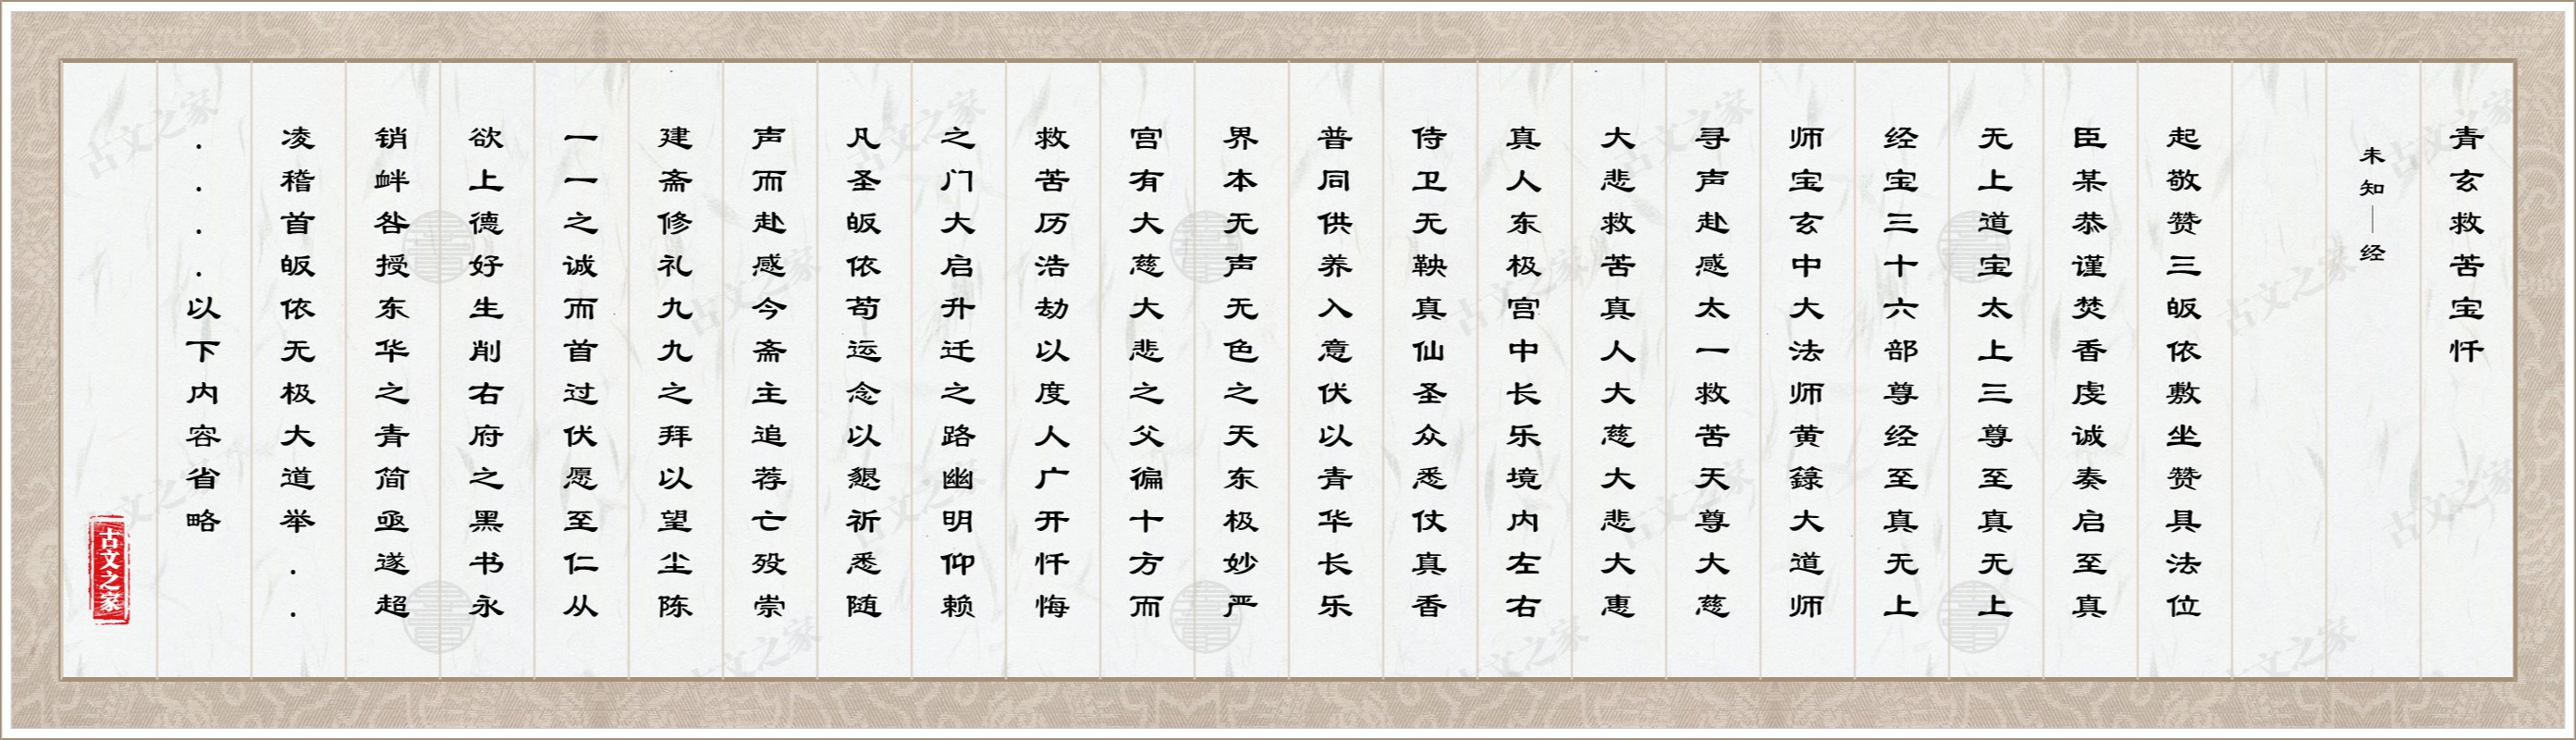 青玄救苦宝忏
未知｜经
起敬赞三皈依敷坐赞具法位
臣某恭谨焚香虔诚奏启至真
无上道宝太上三尊至真无上
经宝三十六部尊经至真无上
师宝玄中大法师黄籙大道师
寻声赴感太一救苦天尊大慈
大悲救苦真人大慈大悲大惠
真人东极宫中长乐境内左右
侍卫无鞅真仙圣众悉仗真香
普同供养入意伏以青华长乐
界本无声无色之天东极妙严
宫有大慈大悲之父徧十方而
救苦历浩劫以度人广开忏悔
之门大启升迁之路幽明仰赖
凡圣皈依苟运念以懇祈悉随
声而赴感今斋主追荐亡殁崇
建斋修礼九九之拜以望尘陈
一一之诚而首过伏愿至仁从
欲上德好生削右府之黑书永
销衅咎授东华之青简亟遂超
凌稽首皈依无极大道举..
....以下内容省略
古文之家